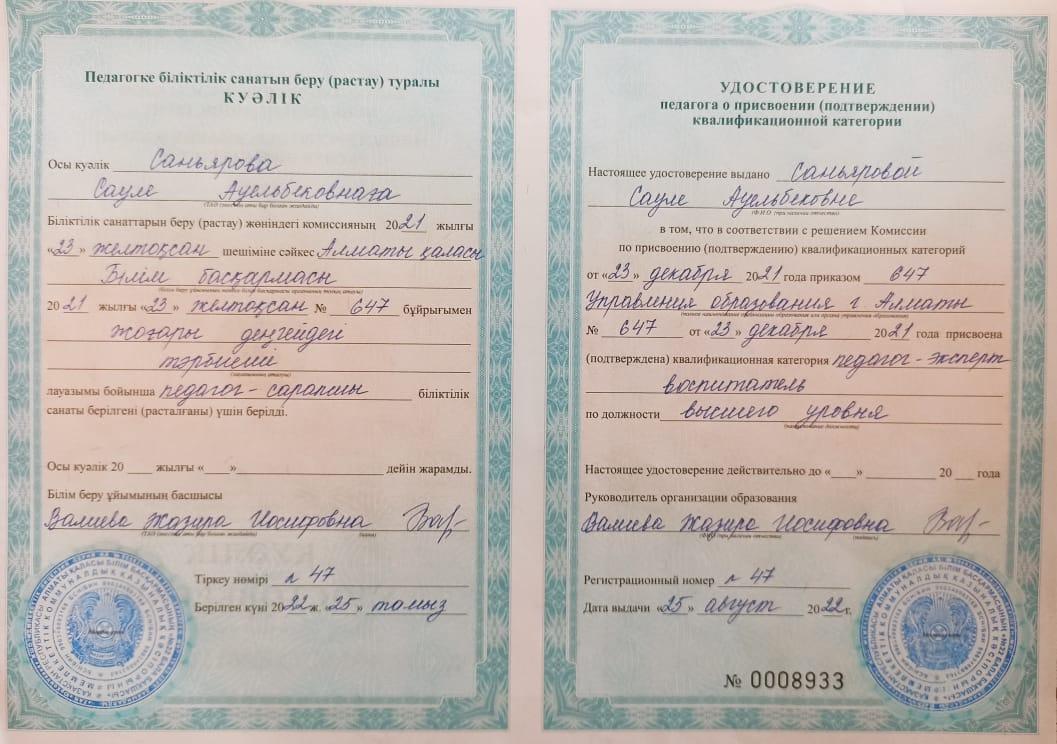 Педагогке біліктілік санатын беру (растау) туралы
КУӘЛІК
Осы куәлік Саньярова
Сауле Ауельбековнаға
(ТАӘ (тегі, аты бар болған жағдайда)
Біліктілік санаттарын беру (растау) жөніндегі комиссияның 2021 жылғы
«23» желтоқсан шешіміне сәйкес Алматы қаласы
Білім басқармасы
2021 жылғы «23» желтоқсан № 647 бұйрығымен
жоғары деңгейдегі
тәрбиеші
лауазымы бойынша педагог - сарапшы біліктілік
санаты берілгені (расталғаны) үшін берілді.
Осы куәлік 20 ___ жылғы «___» ___ дейін жарамды.
Білім беру ұйымының басшысы
Валиева Жазира Иосифовна
Тіркеу нөмірі n 47
Берілген күні 2022 ж. «25» тамыз
УДОСТОВЕРЕНИЕ
педагога о присвоении (подтверждении)
квалификационной категории
Настоящее удостоверение выдано Саньяровой
Сауле Ауельбековне
(Ф.И.О (при наличии отчества)
в том, что в соответствии с решением Комиссии
по присвоению (подтверждению) квалификационных категорий
от «23» декабря 2021 года приказом 647
Управления образования г Алматы
(полное наименование организации образования или органа управления образования)
№ 647 от «23» декабря 2021 года присвоена
(подтверждена) квалификационная категория педагог - эксперт
воспитатель
по должности высшего уровня
(наименование должности)
Настоящее удостоверение действительно до «___» ___ 20 ___ года
Руководитель организации образования
Валиева Жазира Иосифовна
(Ф.И.О (при наличии отчества) (подпись)
Регистрационный номер n 47
Дата выдачи «25» август 2022 г.
№ 0008933